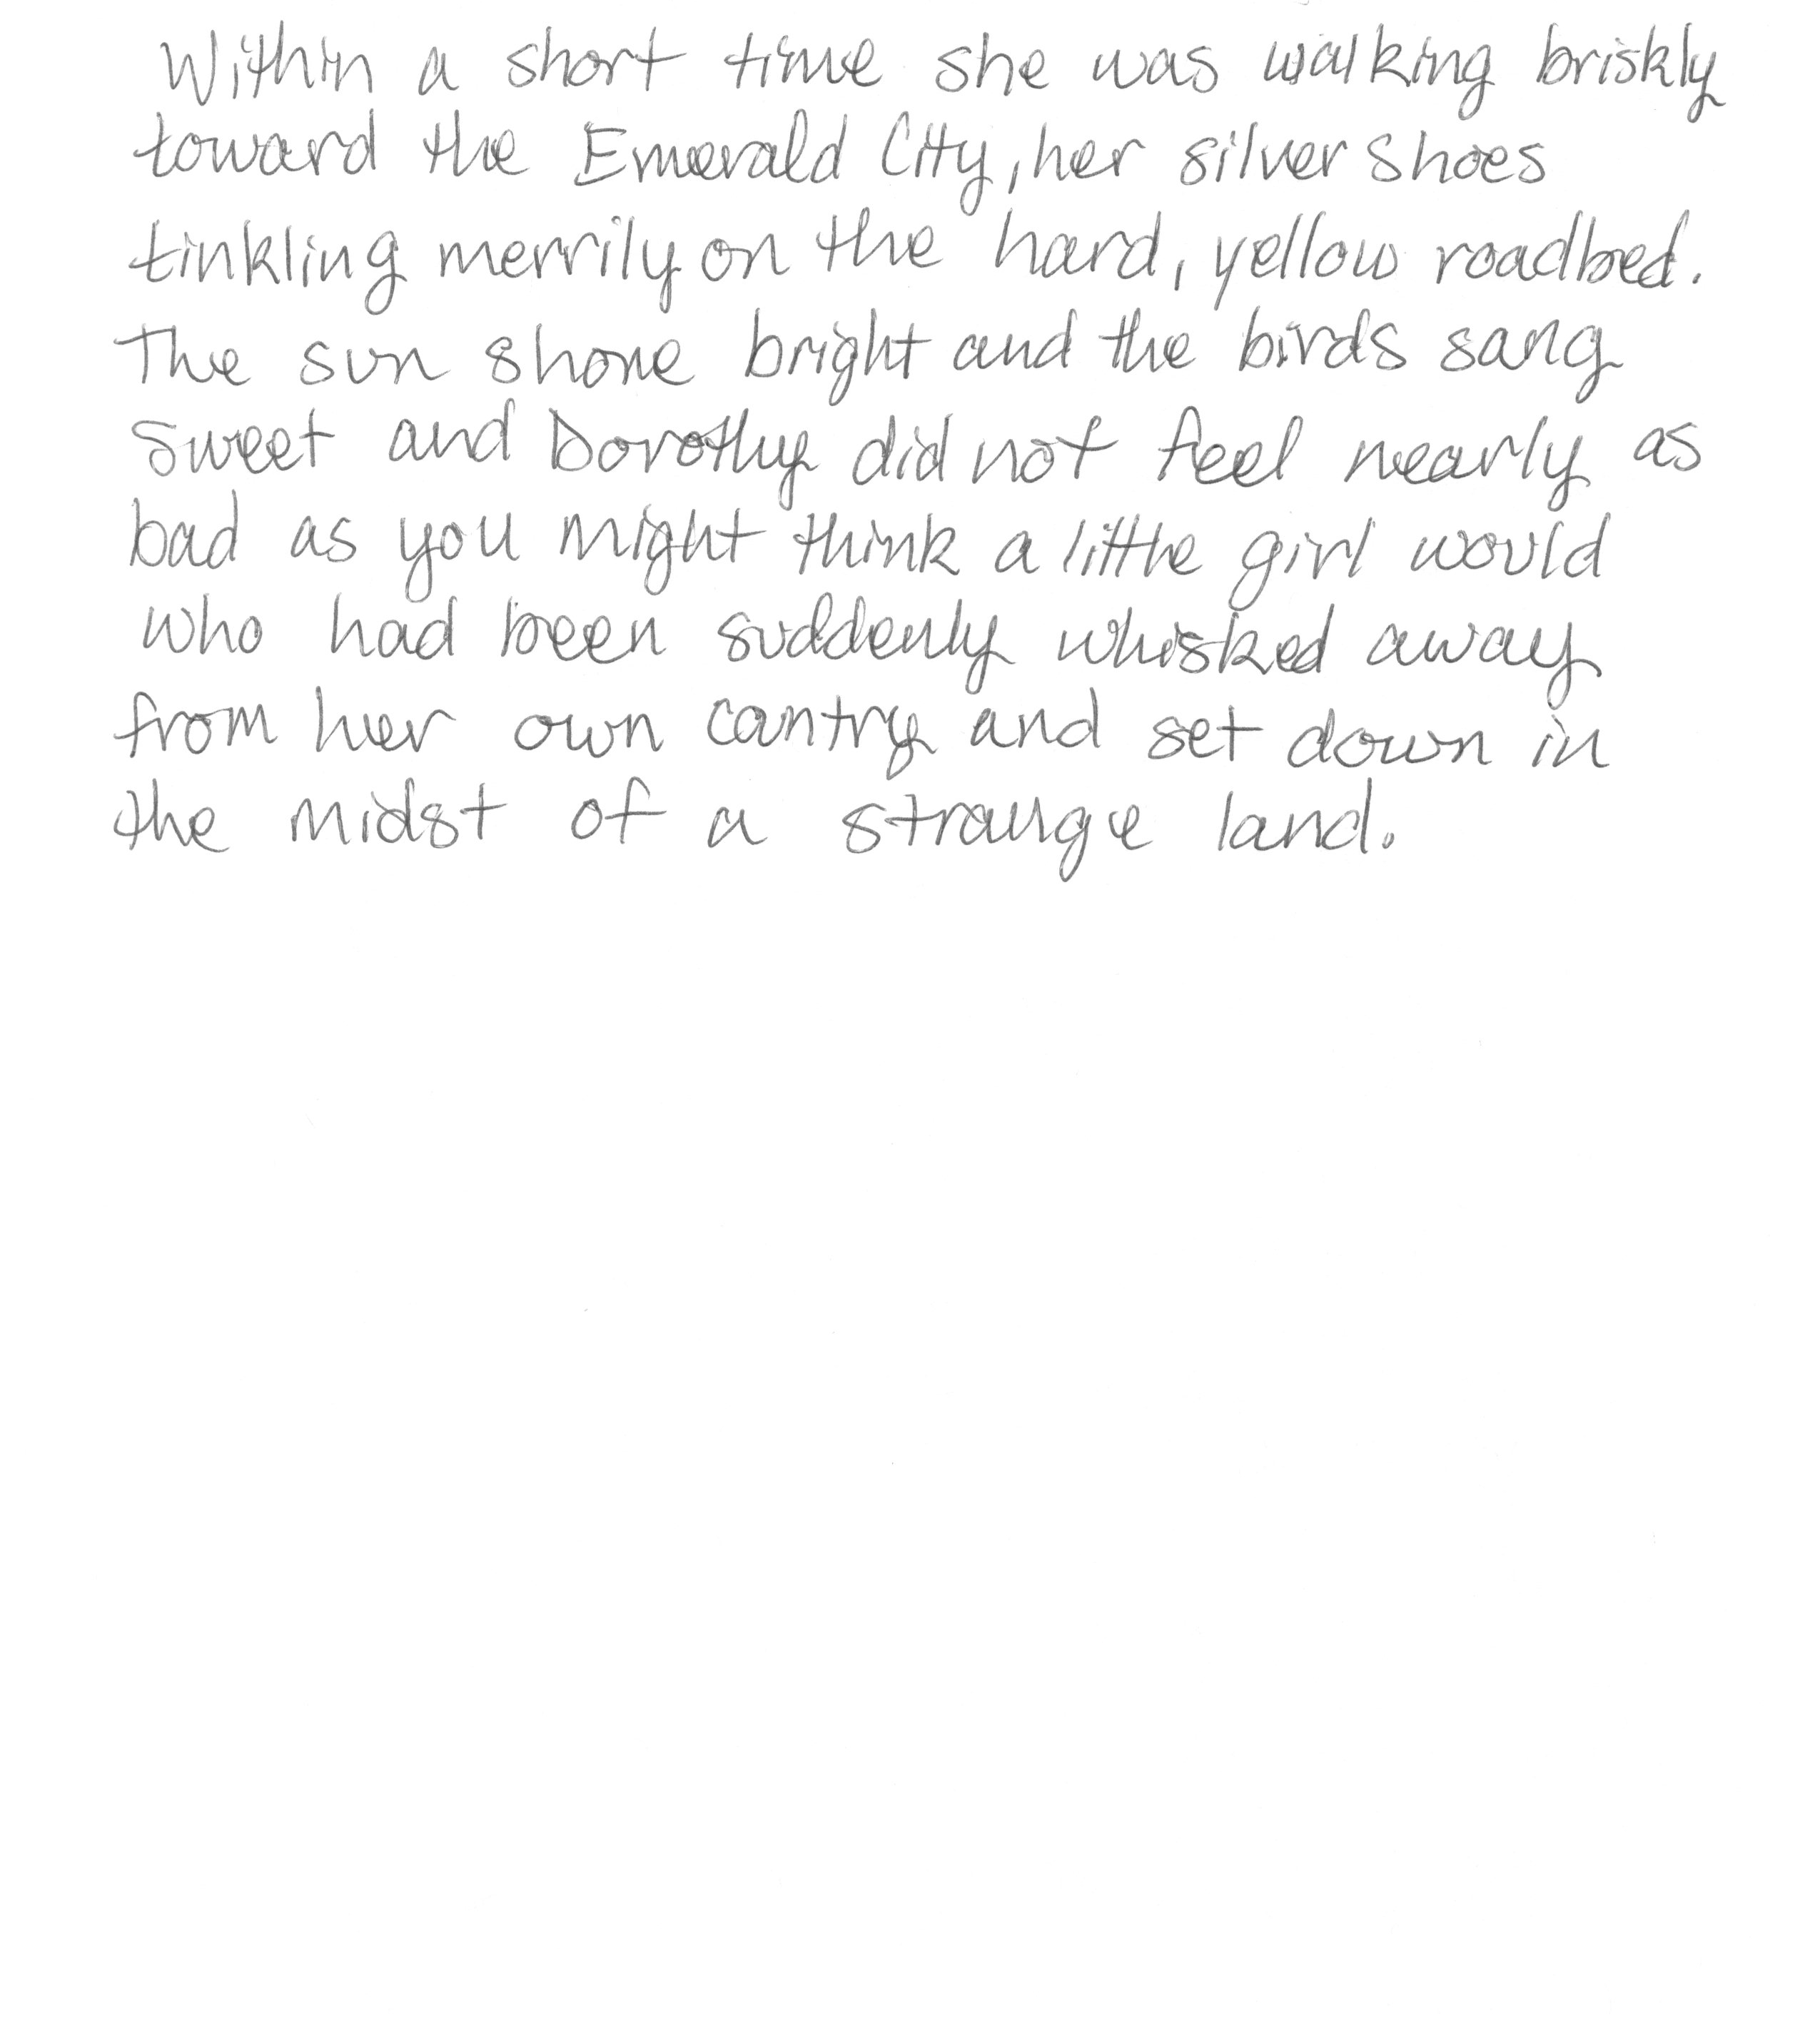 Within a short time she was walking briskly
toward the Emerald City, her silver shoes
tinkling merrily on the hard, yellow roadbed.
The sun shone bright and the birds sang
sweet and Dorothy did not feel nearly as
bad as you might think a little girl would
who had been suddenly whisked away
from her own cantry and set down in
the midst of a strange land.